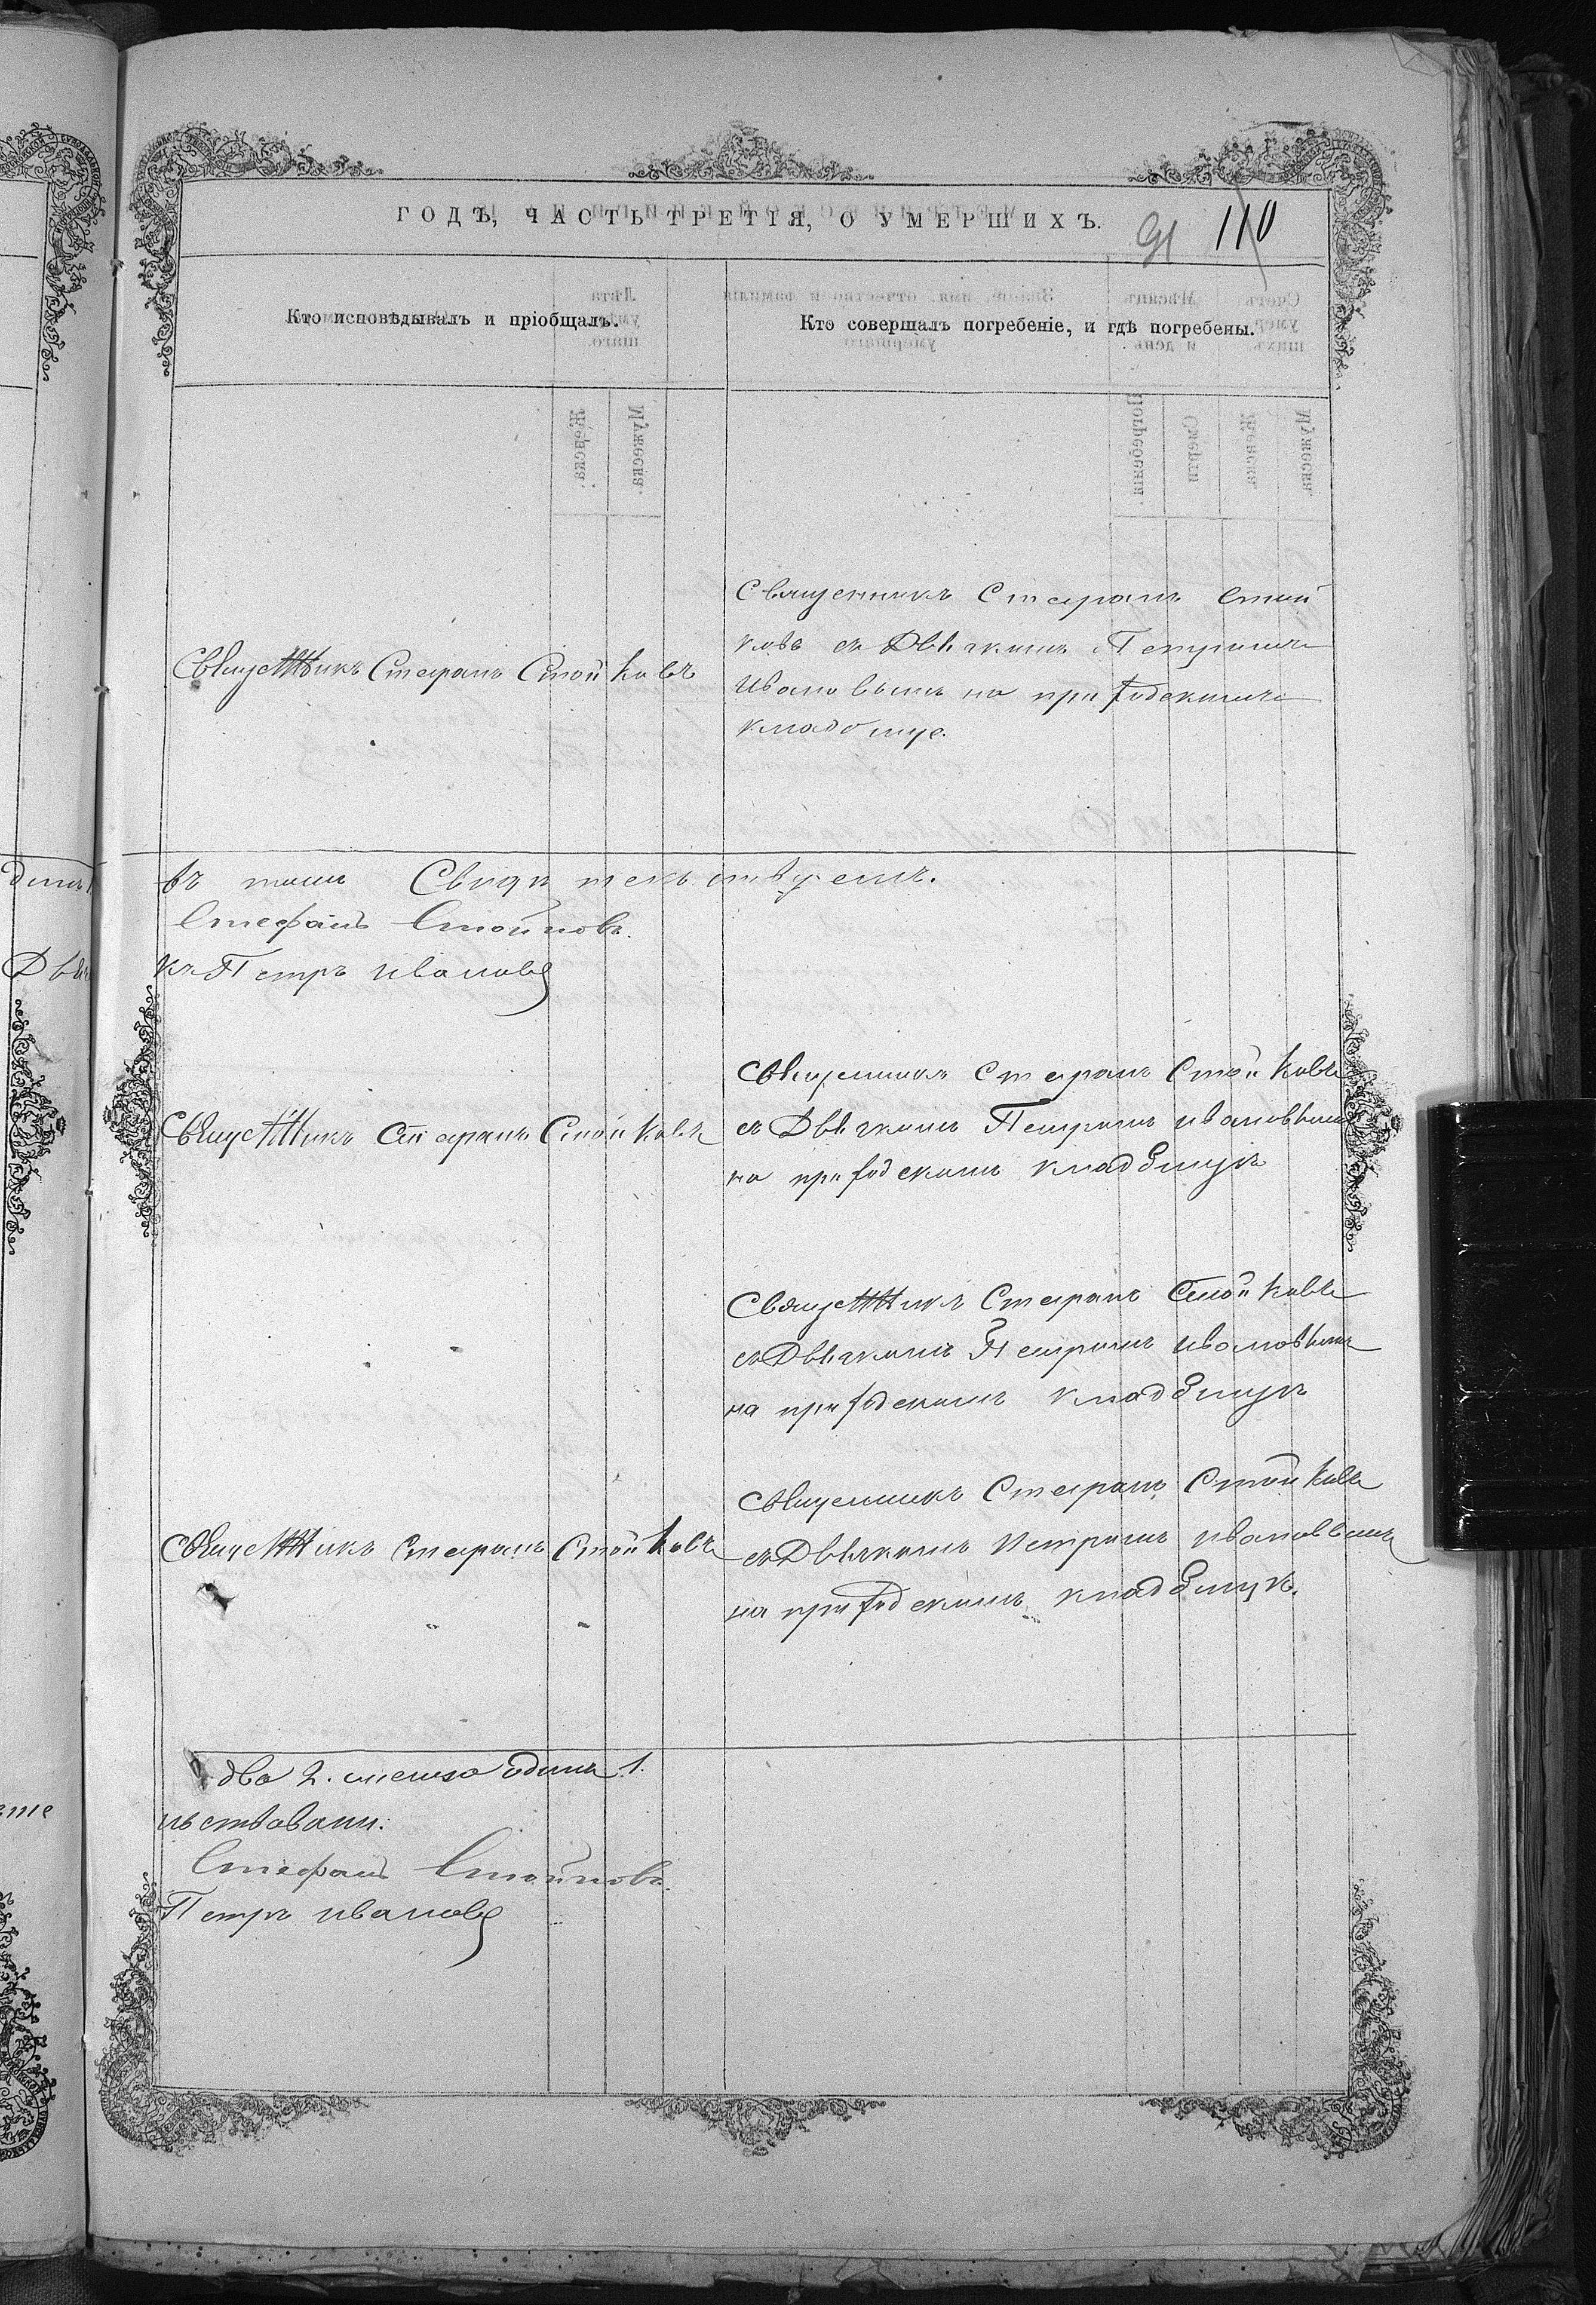 ГОДЪ, ЧАСТЬ ТРЕТІЯ, О УМЕРШИХЪ.
91 110
Кто исповѣдывалъ и пріобщалъ.
Кто совершалъ погребеніе, и гдѣ погребены.
Священникъ Стефанъ Стой
ковъ съ Дьячкомъ Петромъ
Ивановымъ на приходскомъ
кладбище.
Священникъ Стефанъ Стойковъ
въ томъ Свидѣтельствуемъ.
Стефанъ Стойковъ.
къ Петръ Ивановъ
Священникъ Стефанъ Стойковъ
Священникъ Стефанъ Стойковъ
съ Дьячкомъ Петромъ Ивановымъ
на приходскомъ кладбищѣ
Священникъ Стефанъ Стойковъ
съ Дьячкомъ Петромъ Ивановымъ
на приходскомъ кладбищѣ
Священникъ Стефанъ Стойковъ
Священникъ Стефанъ Стойковъ
съ Дьячкомъ Петромъ Ивановымъ
на приходскомъ кладбищѣ.
два 2. женска одинъ 1.
льствовали:
Стефанъ Стойковъ.
Петръ Ивановъ